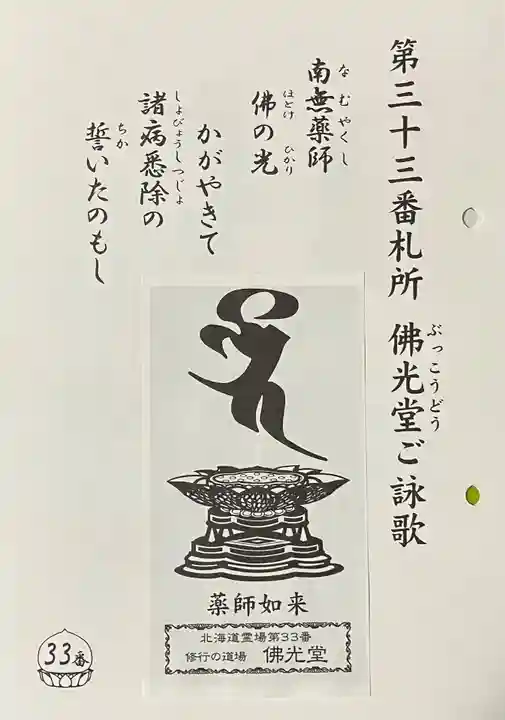 第三十三番札所　佛光堂ご詠歌
ぶっこうどう
南無薬師
なむやくし
佛の光
ほとけ　ひかり
かがやきて
諸病悉除の
しょびょうしつじょ
誓いたのもし
ちか
薬師如来
北海道霊場第33番
修行の道場　佛光堂
33番